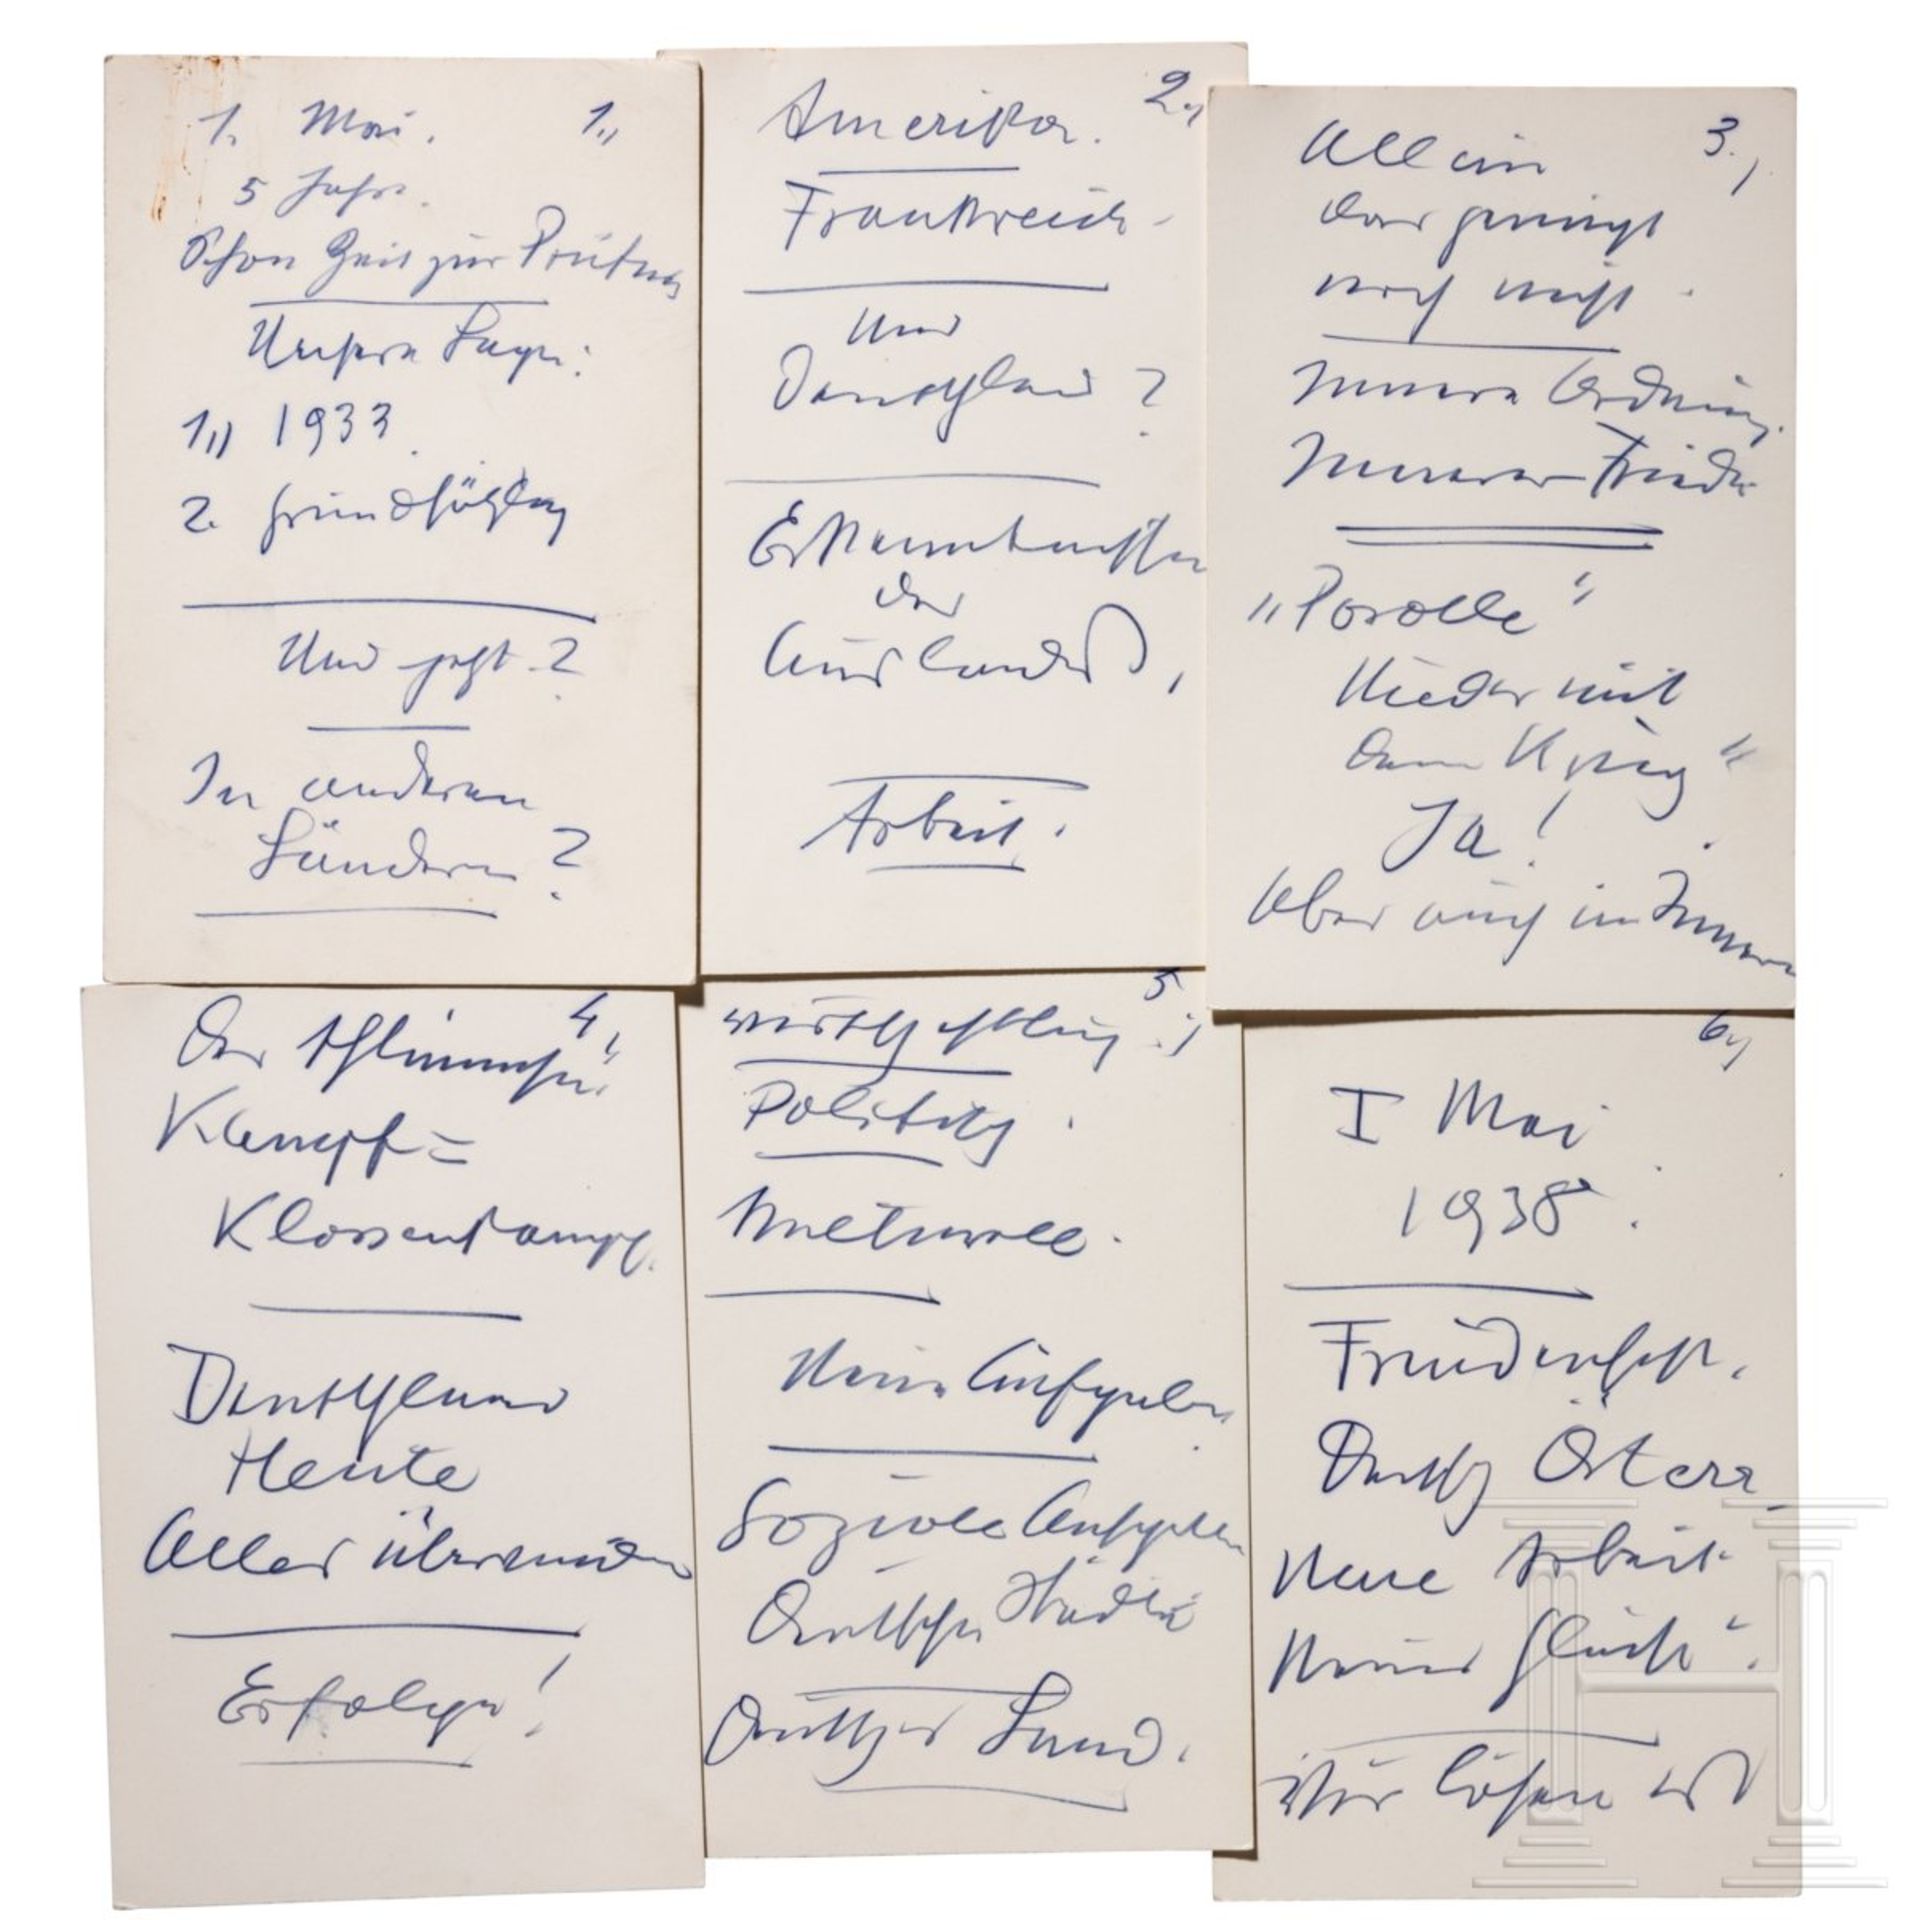 1. Mai. 1.,
5 Jahre.
Schon Zeit zur Prüfung
Unsere Lage:
1.) 1933.
2. grundsätzlich
Und jetzt?
In anderen
Ländern?
2.,
Amerika.
Frankreich
Und
Deutschland?
Erkenntnisse
des
Auslandes,
Arbeit.
3.)
Allein
das genügt
noch nicht.
Innere Ordnung.
Innerer Friede
„Parolle“
Nieder mit
dem Krieg“
Ja!
Aber auch im Innern
4.,
Der schlimmste
Kampf =
Klassenkampf.
Deutschland
Heute
Alles überwunden
Erfolge!
5.)
wirtschaftlich
Politisch.
Kulturell.
Neue Aufgaben
Soziale Aufgaben
Deutsche Städte
Deutsches Land.
6.)
I Mai
1938.
Friedensfest.
Deutsch Österr
Neue Arbeit
Neues Glück".
Wir lösen es